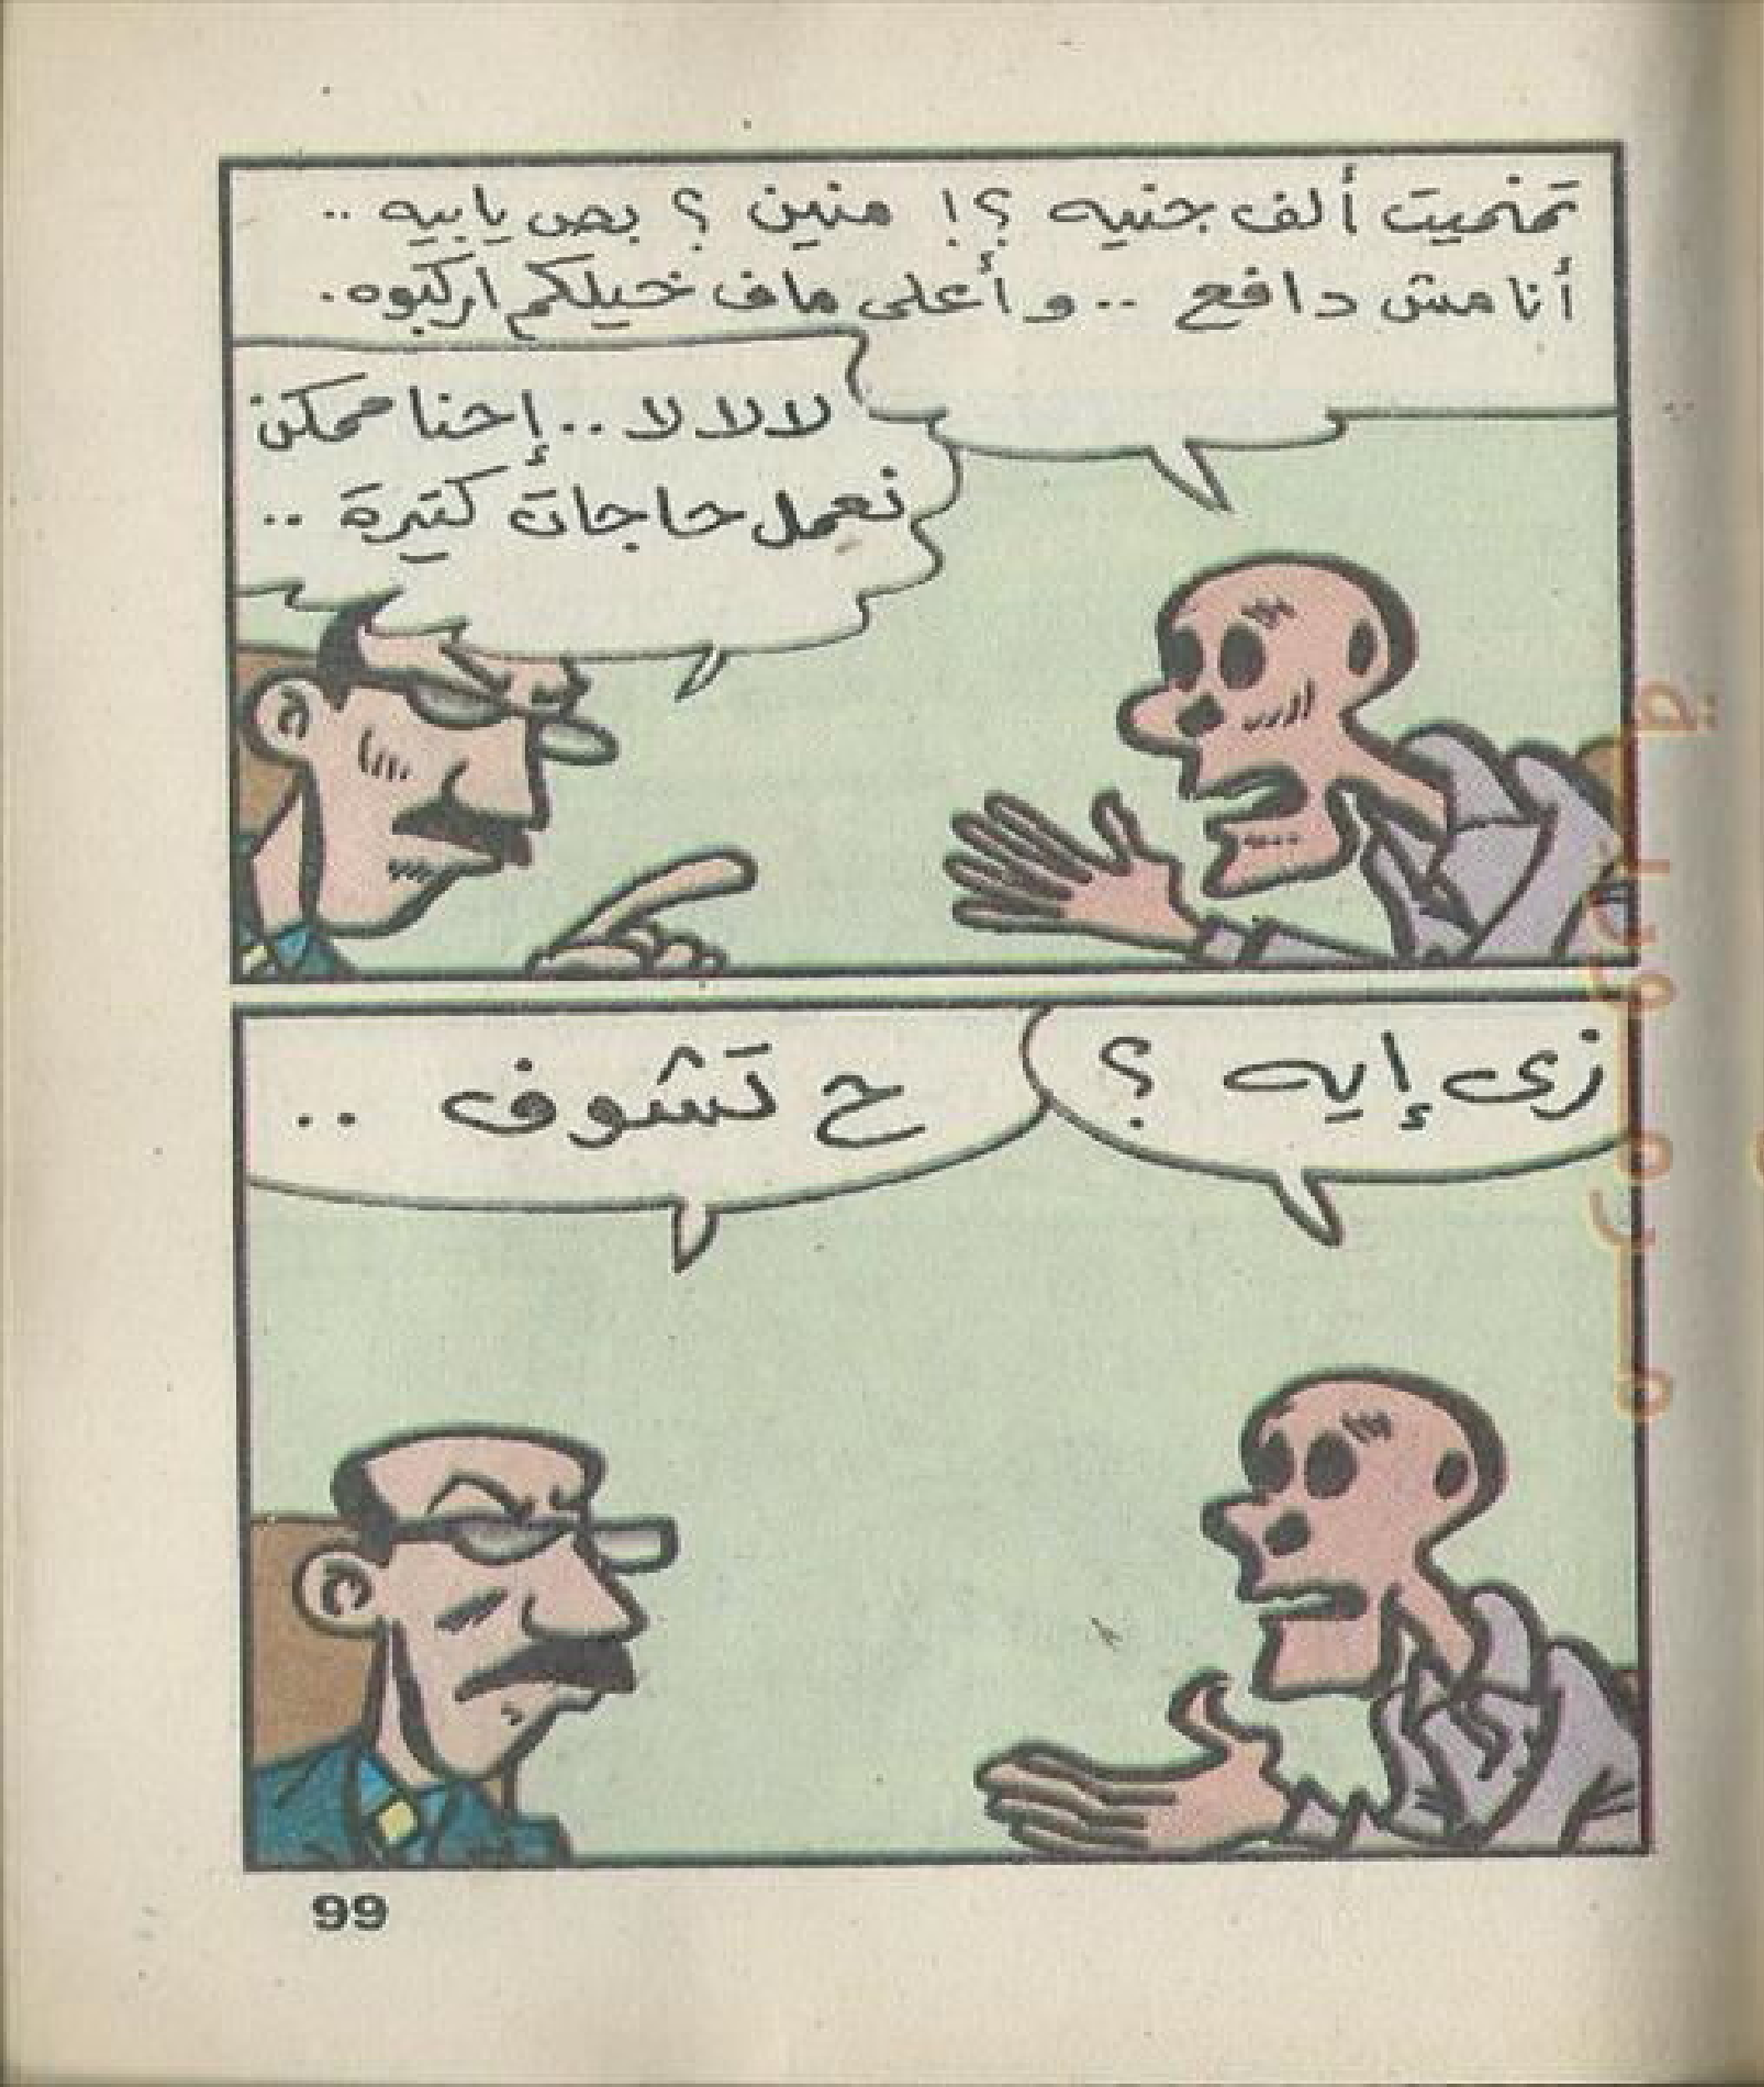 تمنميت ألف جنيه ؟! منين ؟ بص يا بيه ..
أنا مش دافع .. و أعلى ماف خيلكم اركبوه .
لا لا لا .. إحنا ممكن
نعمل حاجات كتيرة ..
زى إيه ؟
ح تشوف ..
99